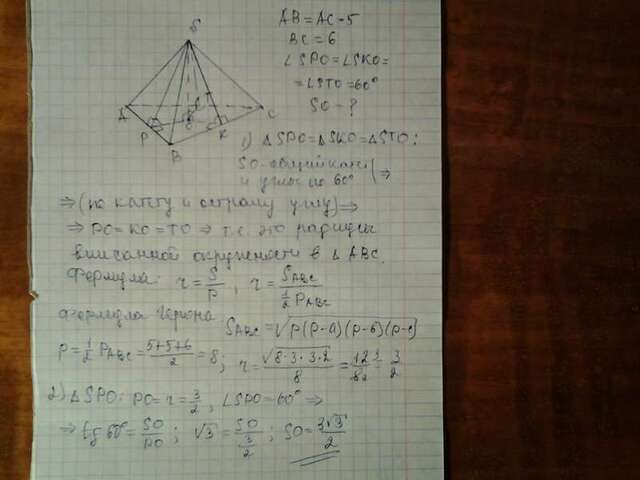 S
A
C
P
B
K
O
AB = AC = 5
BC = 6
∠SPO = ∠SKO =
= ∠STO = 60°
SO - ?
1) △SPO = △SKO = △STO:
SO - общий катет
и углы по 60° ⇒
⇒ (по катету и острому углу) ⇒
⇒ PO = KO = TO ⇒ т.е. это радиусы
вписанной окружности в △ABC.
Формула: r = S/P, r = S_ABC / ½ P_ABC
Формула Герона S_ABC = √p(p-a)(p-b)(p-c)
p = ½ P_ABC = (5+5+6)/2 = 8; r = √8·3·3·2 / 8 = 12/8 = 3/2
2) △SPO: PO = r = 3/2, ∠SPO = 60° ⇒
⇒ tg 60° = SO/PO; √3 = SO/(3/2); SO = 3√3/2